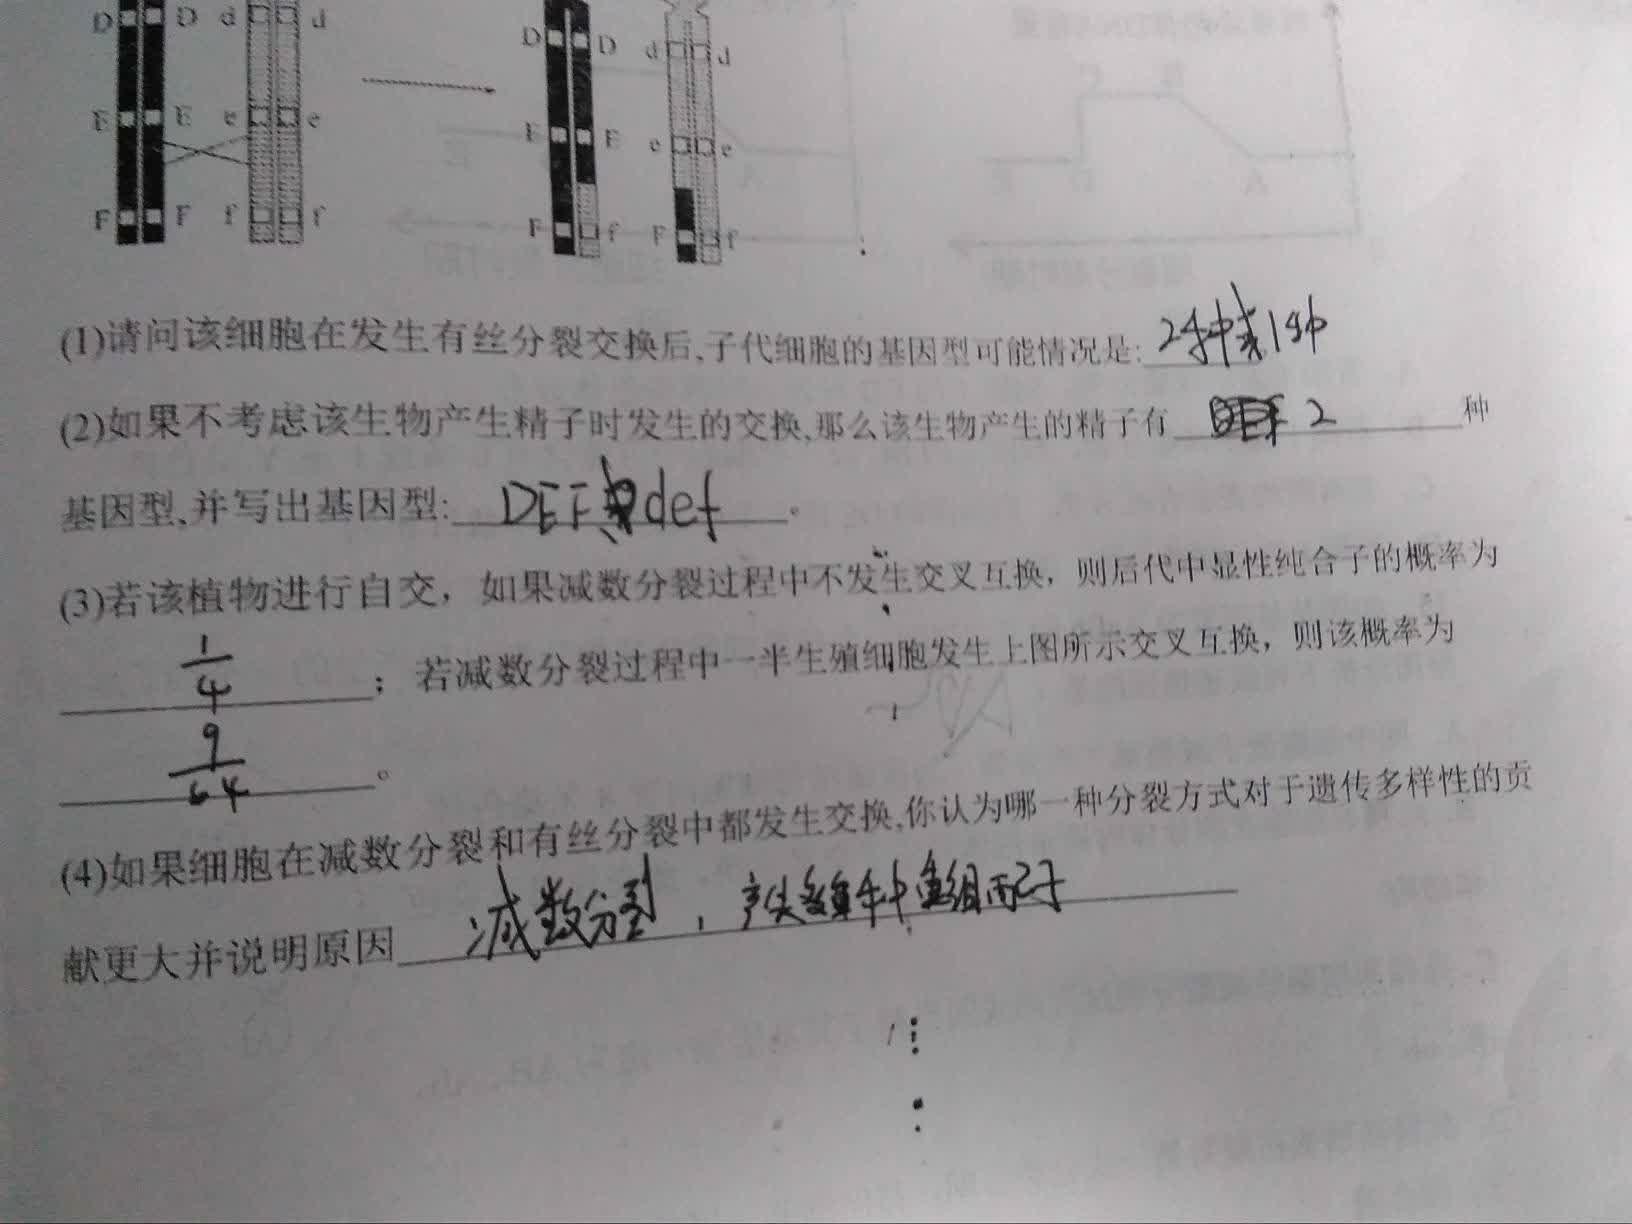 D D d d D D d d
E E e e E E e e
F F f f F f F f
(1)请问该细胞在发生有丝分裂交换后,子代细胞的基因型可能情况是: 2种或1种
(2)如果不考虑该生物产生精子时发生的交换,那么该生物产生的精子有 2 种
基因型,并写出基因型: DEF def 。
(3)若该植物进行自交，如果减数分裂过程中不发生交叉互换，则后代中显性纯合子的概率为
1/4 ；若减数分裂过程中一半生殖细胞发生上图所示交叉互换，则该概率为
9/64 。
(4)如果细胞在减数分裂和有丝分裂中都发生交换,你认为哪一种分裂方式对于遗传多样性的贡
献更大并说明原因 减数分裂，产生多种重组配子